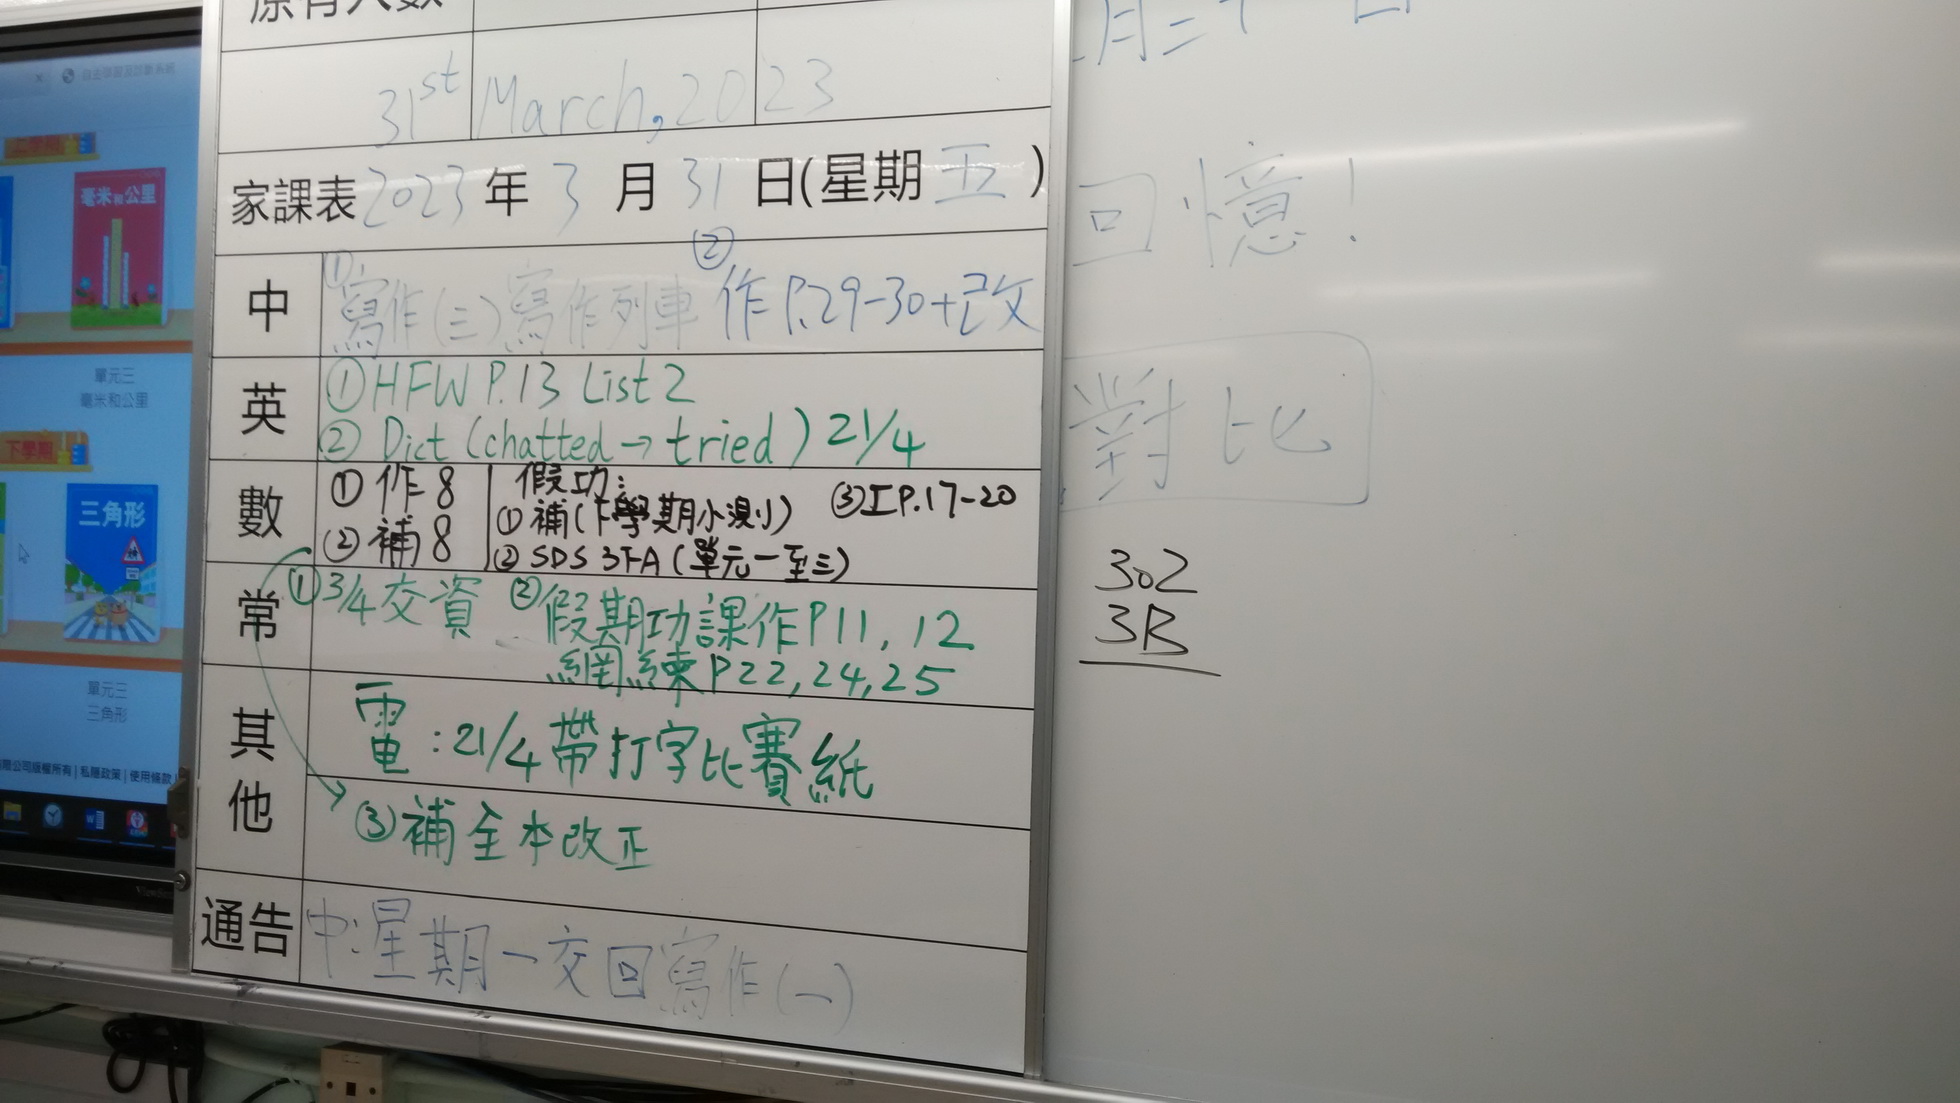 原有人數
31st March, 2023
家課表 2023 年 3 月 31 日(星期 五 )
中 ①寫作(三)寫作列車 ②作P.29-30+改
英 ①HFW P.13 List 2
② Dict (chatted → tried) 21/4
數 ① 作 8
② 補 8
假功:
① 補(下學期小測1)
② SDS 3TA (單元一至三)
③工P.17-20
常 ①3/4交資 ②假期功課作P11, 12
網練P22, 24, 25
其他 電:21/4帶打字比賽紙
③補全本改正
通告 中:星期一交回寫作(一)
回憶!
對比
302
3B
毫米和公里
單元三
毫米和公里
下學期
三角形
單元三
三角形
公司版權所有 | 私隱政策 | 使用條款 |